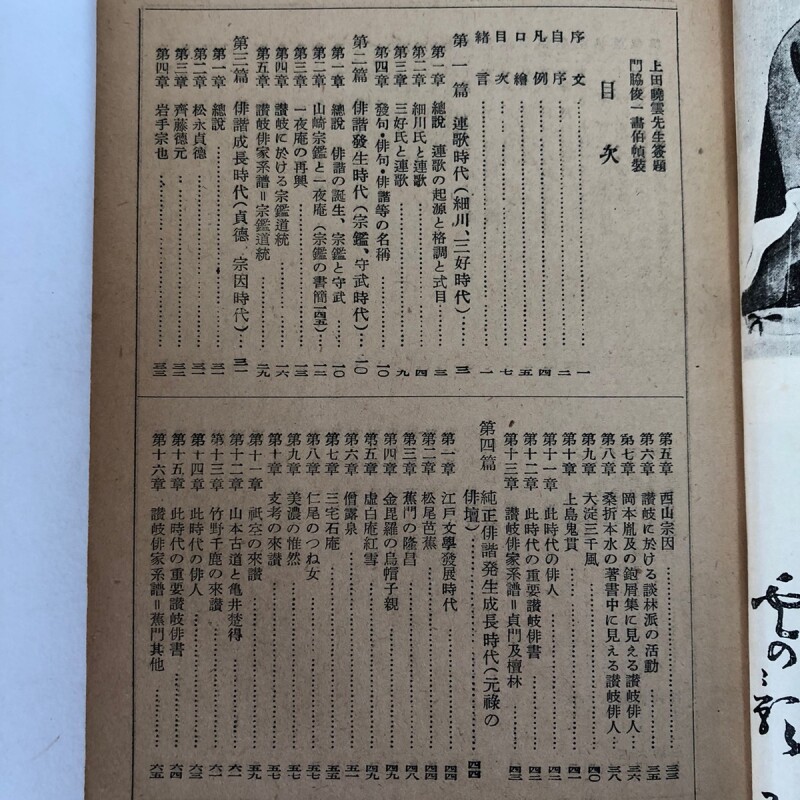 上田曉雲先生簽題
門脇俊一畫伯幀裝
目次
序文 一
自序 二
凡例 四
口繪 五
目次 七
緒言 一
第一篇 連歌時代(細川、三好時代) 三
第一章 總説 連歌の起源と格調と式目 三
第二章 細川氏と連歌 四
第三章 三好氏と連歌 九
第四章 發句・俳句・俳諧等の名稱 一〇
第二篇 俳諧發生時代(宗鑑、守武時代) 一〇
第一章 總説 俳諧の誕生、宗鑑と守武 一〇
第二章 山崎宗鑑と一夜庵(宗鑑の書簡一四五) 一二
第三章 一夜庵の再興 一三
第四章 讃岐に於ける宗鑑道統 一六
第五章 讃岐俳家系譜=宗鑑道統 二九
第三篇 俳諧成長時代(貞德 宗因時代) 三一
第一章 總説 三一
第二章 松永貞德 三一
第三章 齊藤德元 三二
第四章 岩手宗也 三三
第五章 西山宗因 三三
第六章 讃岐に於ける談林派の活動 三五
第七章 岡本胤及の鉋屑集に見える讃岐俳人 三六
第八章 桑折本水の著書中に見える讃岐俳人 三八
第九章 大淀三千風 四〇
第十章 上島鬼貫 四一
第十一章 此時代の俳人 四二
第十二章 此時代の重要讃岐俳書 四二
第十三章 讃岐俳家系譜=貞門及檀林 四三
第四篇 純正俳諧発生成長時代(元祿の
俳壇) 四四
第一章 江戸文學發展時代 四四
第二章 松尾芭蕉 四四
第三章 蕉門の隆昌 四八
第四章 金毘羅の烏帽子親 四九
第五章 虛白庵紅雪 四九
第六章 僧露泉 五一
第七章 三宅石庵 五五
第八章 仁尾のつね女 五七
第九章 美濃の惟然 五七
第十章 支考の來讃 五七
第十一章 祇空の來讃 五九
第十二章 山本古道と龜井楚得 六一
第十三章 竹野千鹿の來讃 六一
第十四章 此時代の俳人 六三
第十五章 此時代の重要讃岐俳書 六四
第十六章 讃岐俳家系譜=蕉門其他 六五